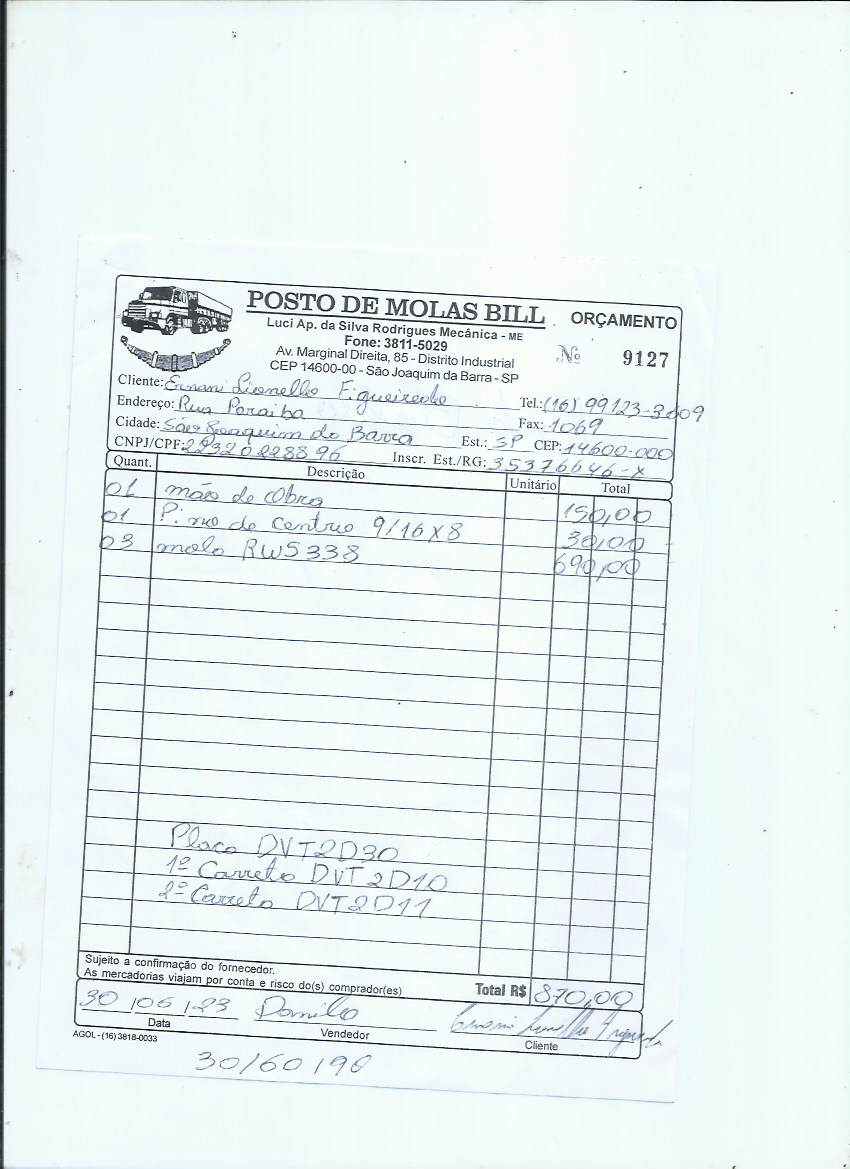 POSTO DE MOLAS BILL
ORÇAMENTO
Luci Ap. da Silva Rodrigues Mecânica - ME
Fone: 3811-5029
Nº 9127
Av. Marginal Direita, 85 - Distrito Industrial
CEP 14600-00 - São Joaquim da Barra - SP
Cliente: Ernani Lionello Figueiredo Tel.: (16) 99123-3009
Endereço: Rua Paraiba Fax: 1069
Cidade: São Joaquim da Barra Est.: SP CEP: 14600-000
CNPJ/CPF: 22320228896 Inscr. Est./RG: 35376646-X
Quant. Descrição Unitário Total
01 mão de Obra 150,00
01 Pino de centrio 9/16 x 8 30,00
03 mola RW5338 690,00
Placa DVT2D30
1º Carreta DVT2D10
2º Carreta DVT2D11
Sujeito a confirmação do fornecedor.
As mercadorias viajam por conta e risco do(s) comprador(es)
Total R$ 870,00
30/06/23 Danilo
Data Vendedor Cliente
AGOL - (16) 3818-0033
30/60/90